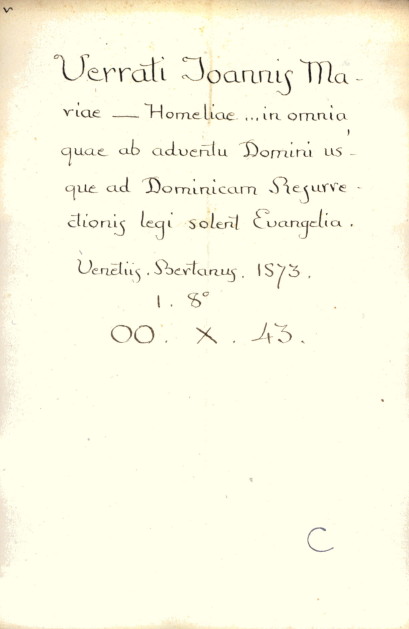 Verrati Joannis Ma-
riae — Homeliae ... in omnia,
quae ab adventu Domini us-
que ad Dominicam Resurre-
ctionis legi solent Evangelia.
Venetiis. Bertanus. 1573.
1. 8°
OO. X. 43.
C